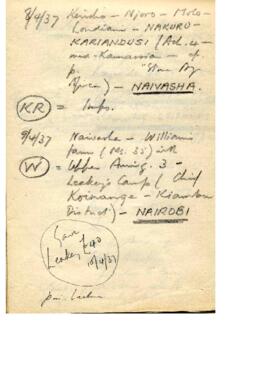 8/4/37 Kericho - Njoro - Molo -
Londiani - NAKURU -
KARIANDUSI (
and Kamasia - of
p. "Stone Age
) - NAIVASHA.
KR =
9/4/37 Naivasha - William's
farm (Ms. 35) with
W = Upper Aurig. 3 -
Leakey's Camp (Chief
Koinange - Kiambu
District) - NAIROBI
Gave
Leakey £40
10/4/37